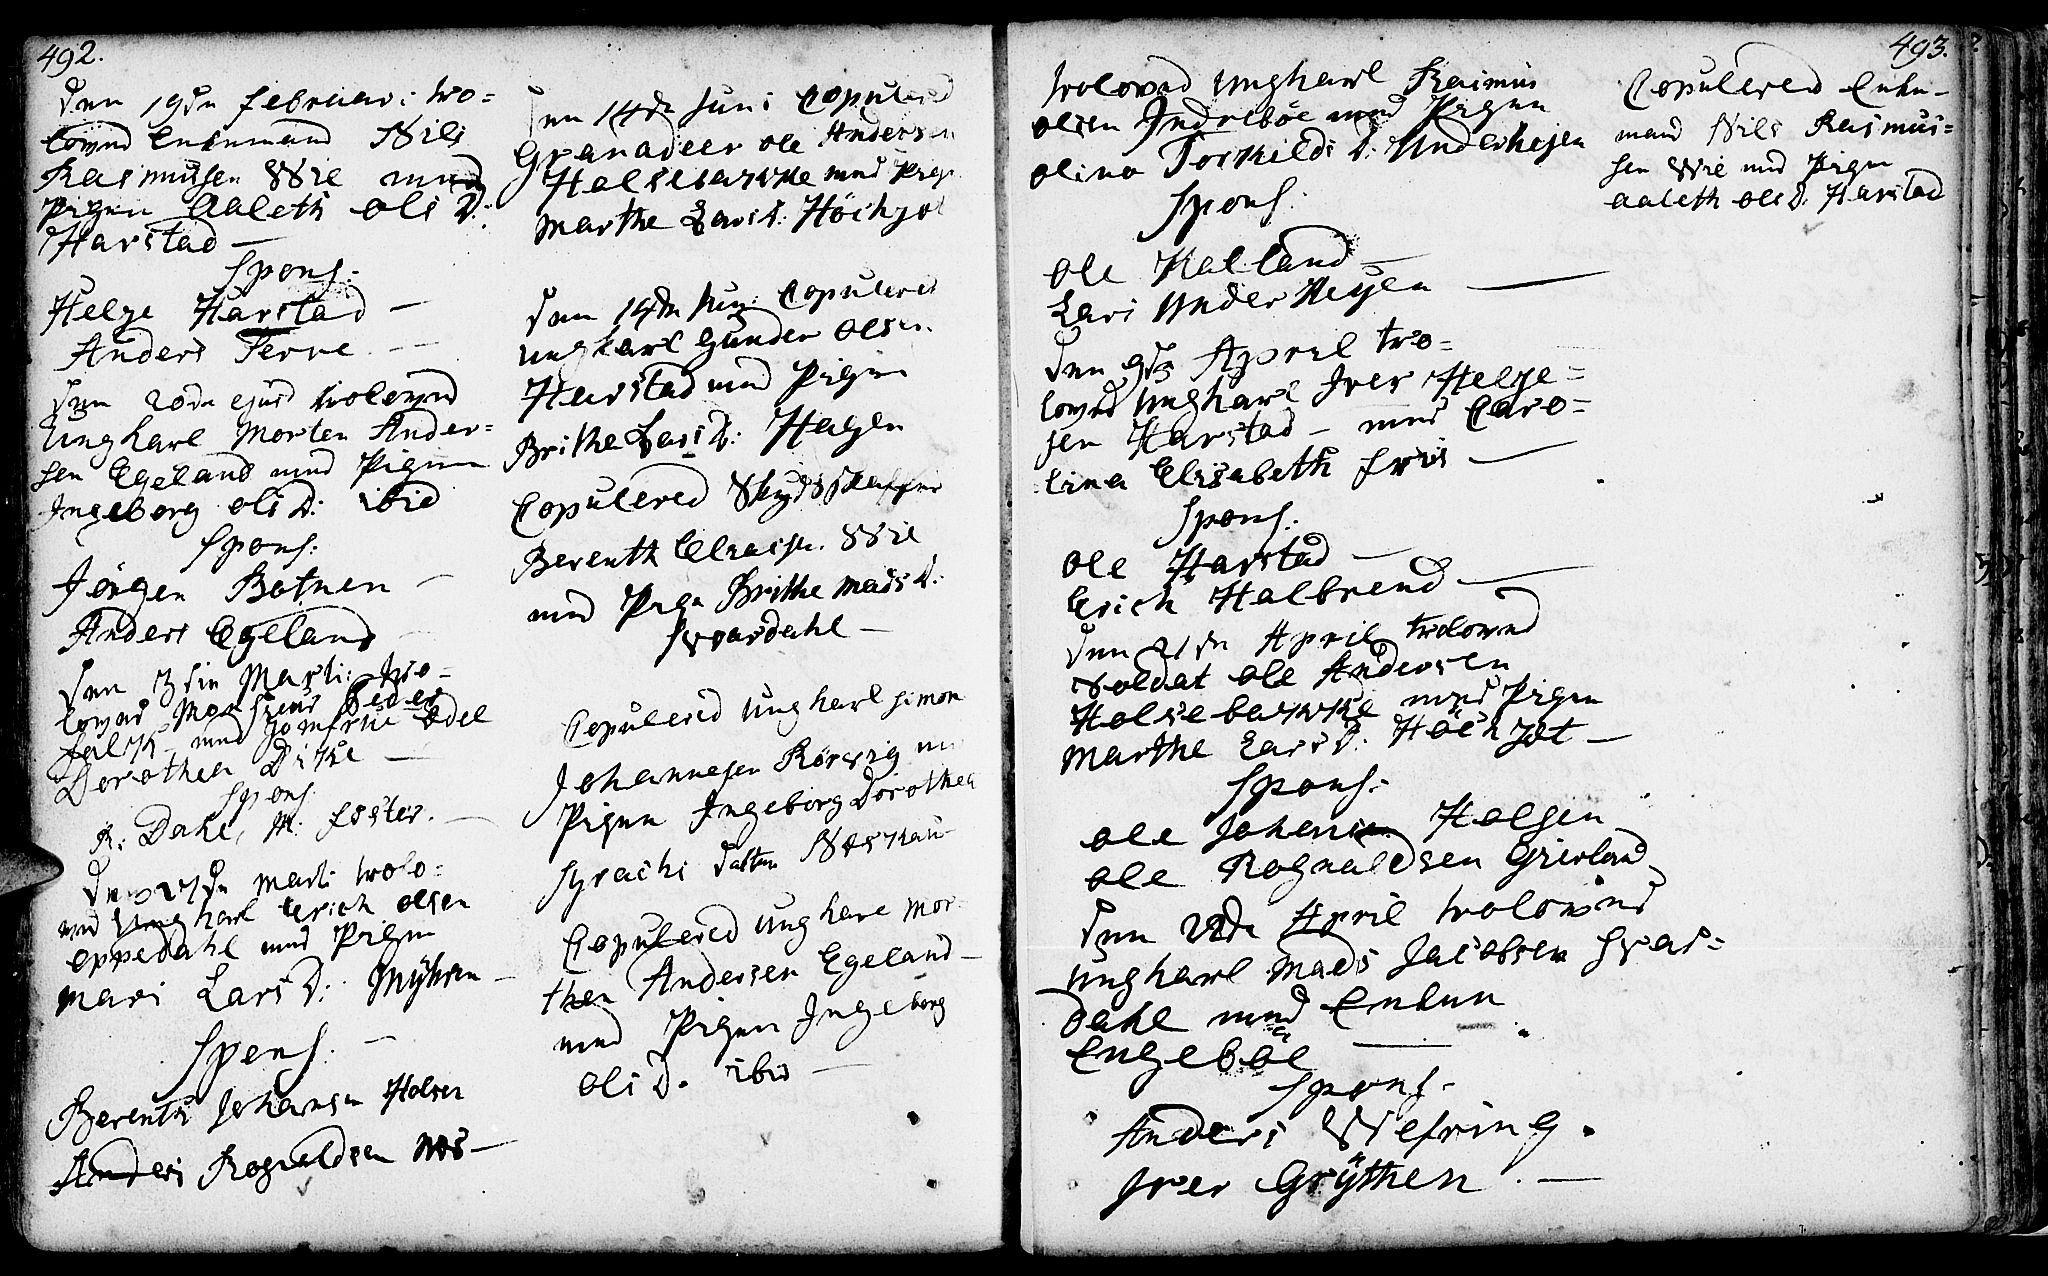 492.
den 19de februari tro-
lowed Enkemand Nils
Rasmussen Wie med
Pigen Aaleth Ols D:
Harstad —
Spons:
Helge Harstad —
Anders Ferre — —
den 20de ejusd trolowed
Ungkarl Morten Ander-
sen Egeland med Pigen
Ingeborg Ols D: ibid
Spons:
Jörgen Botnen —
Anders Egeland
den 3die Marti: tro-
lowed Monsieur Peder
Falck med Jomfrue Edel
Dorothea Ditke —
Spons
R: Dahl, M: Foster. —
den 27de Marti trolo-
wed Ungkarl Erich Olsen
Oppedahl med Pigen
Mari Lars D: Mÿhren —
Spons: —
Berenth Johansen Holsen
Anders Rognaldsen Nes —
den 14de Juni Copulered
Granadeer Ole Andersen
Holsebaxke med Pige
Marthe Lars D: Höichjol
den 14de Juni Copulered
ungkarl Gunder Olsen
Harstad med Pigen
Brithe Lars D: Hagen
Copulered Skydsskaffer
Berenth Eliass. Wie
med Pigen Brithe Mads D:
Svardahl —
Copulered Ungkarl Simon
Johannesen Rörvig
Pigen Ingeborg Dorothea
Sprachs datter
Copulered Ungkarl Mor-
then Andersen Egeland —
med Pigen Ingeborg
Ols D. ibid —
493.
trolowed Ungkarl Rasmus
Olsen Indreböe med Pigen
Olina Torkilds D: Underhejen
Spons:
Ole Halland —
Lars Underhejen —
den 9de April tro-
lowed Ungkarl Iver Helge-
sen Harstad — med Caro-
lina Elisabeth Friis —
Spons:
Ole Harstad —
Erich Halbrend —
den 21de April trolowed
Soldat Ole Andersen
Holsebaxke med Pigen
Marthe Lars D: Höichjol —
Spons:
Ole Johansen Holsen
Ole Rognaldsen Grimland
den 22de April trolowed
Ungkarl Mads Jacobsen Svar-
dahl med Enken
Engeböe —
Spons:
Anders Wefring.
Iver Grÿthen . —
Copulered Enke-
mand Nils Rasmus-
sen Wie med Pigen
Aaleth Ols D: Harstad